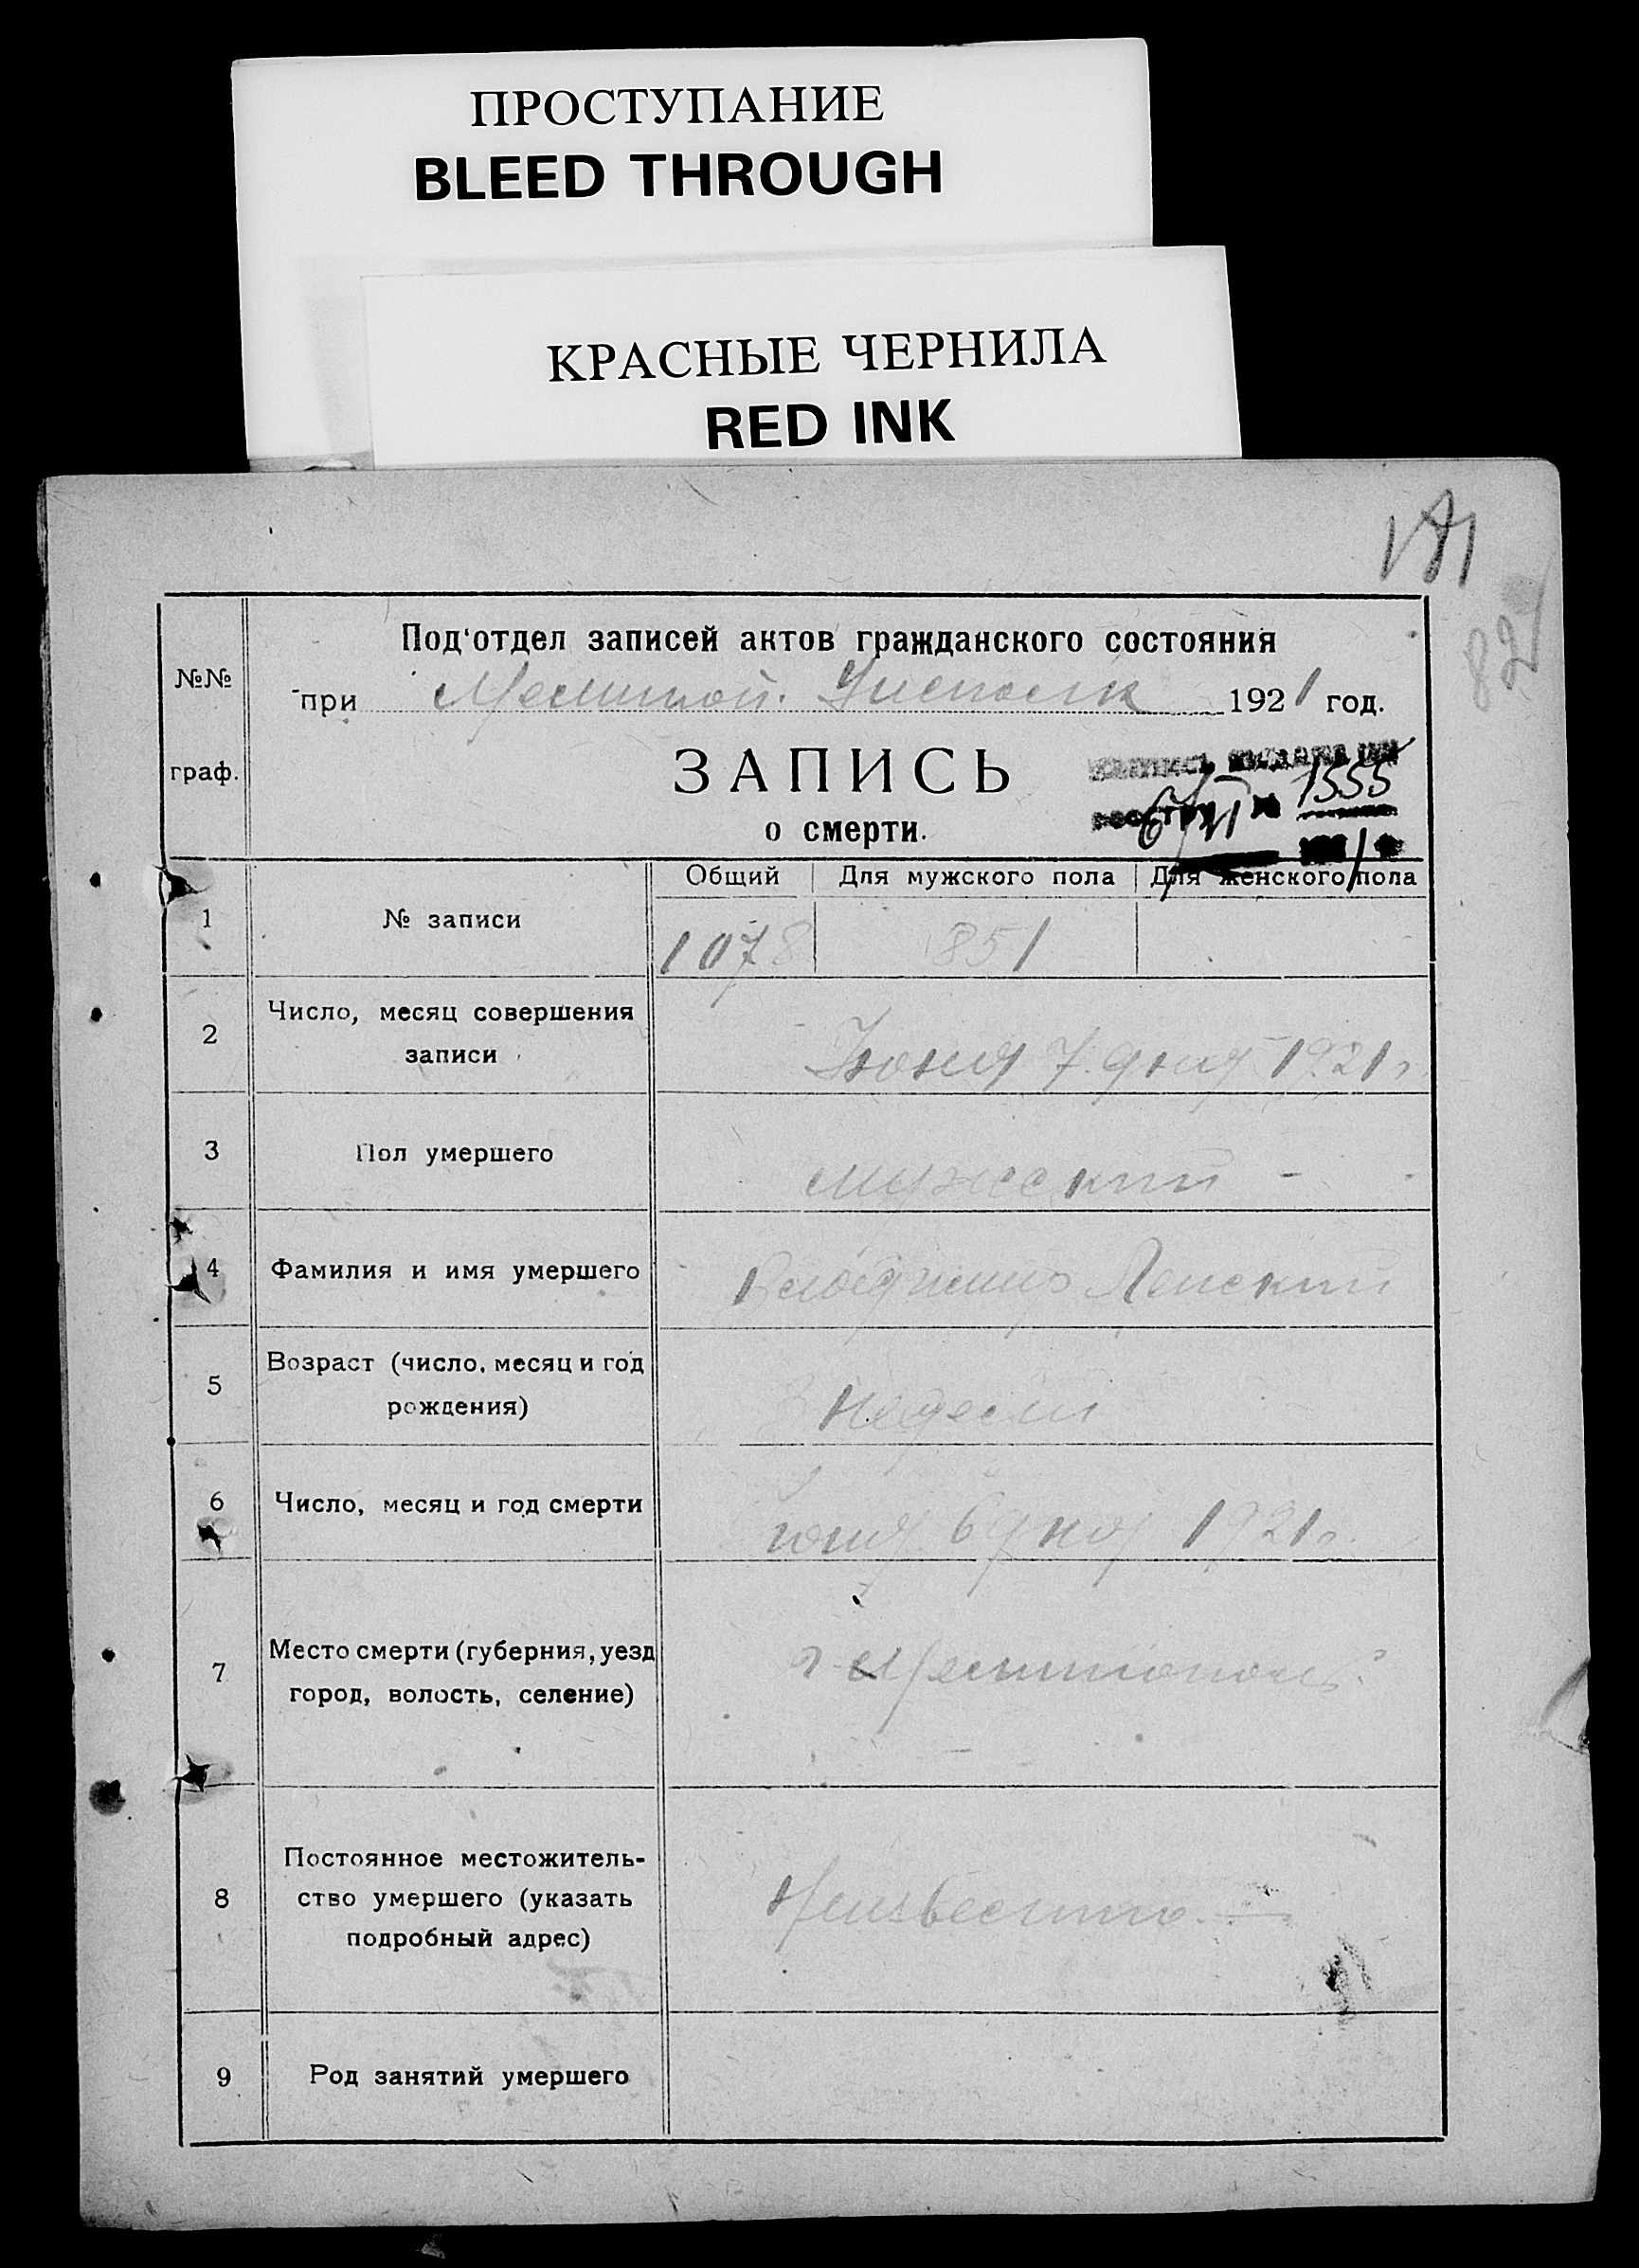 ПРОСТУПАНИЕ
BLEED THROUGH
КРАСНЫЕ ЧЕРНИЛА
RED INK
82
№№
граф.
Под'отдел записей актов гражданского состояния
при Мелитой. Уисполк 1921 год.
ЗАПИСЬ
о смерти.
1555
Общий Для мужского пола Для женского пола
1 № записи 1078 851
2 Число, месяц совершения
записи Июня 7 дня 1921 г.
3 Пол умершего мужеский -
4 Фамилия и имя умершего Владимир Ленский
5 Возраст (число, месяц и год
рождения) 3 недели
6 Число, месяц и год смерти июня 6 дня 1921 г.
7 Место смерти (губерния, уезд
город, волость, селение) г. Мелитополь
8 Постоянное местожитель-
ство умершего (указать
подробный адрес) Неизвестно.
9 Род занятий умершего